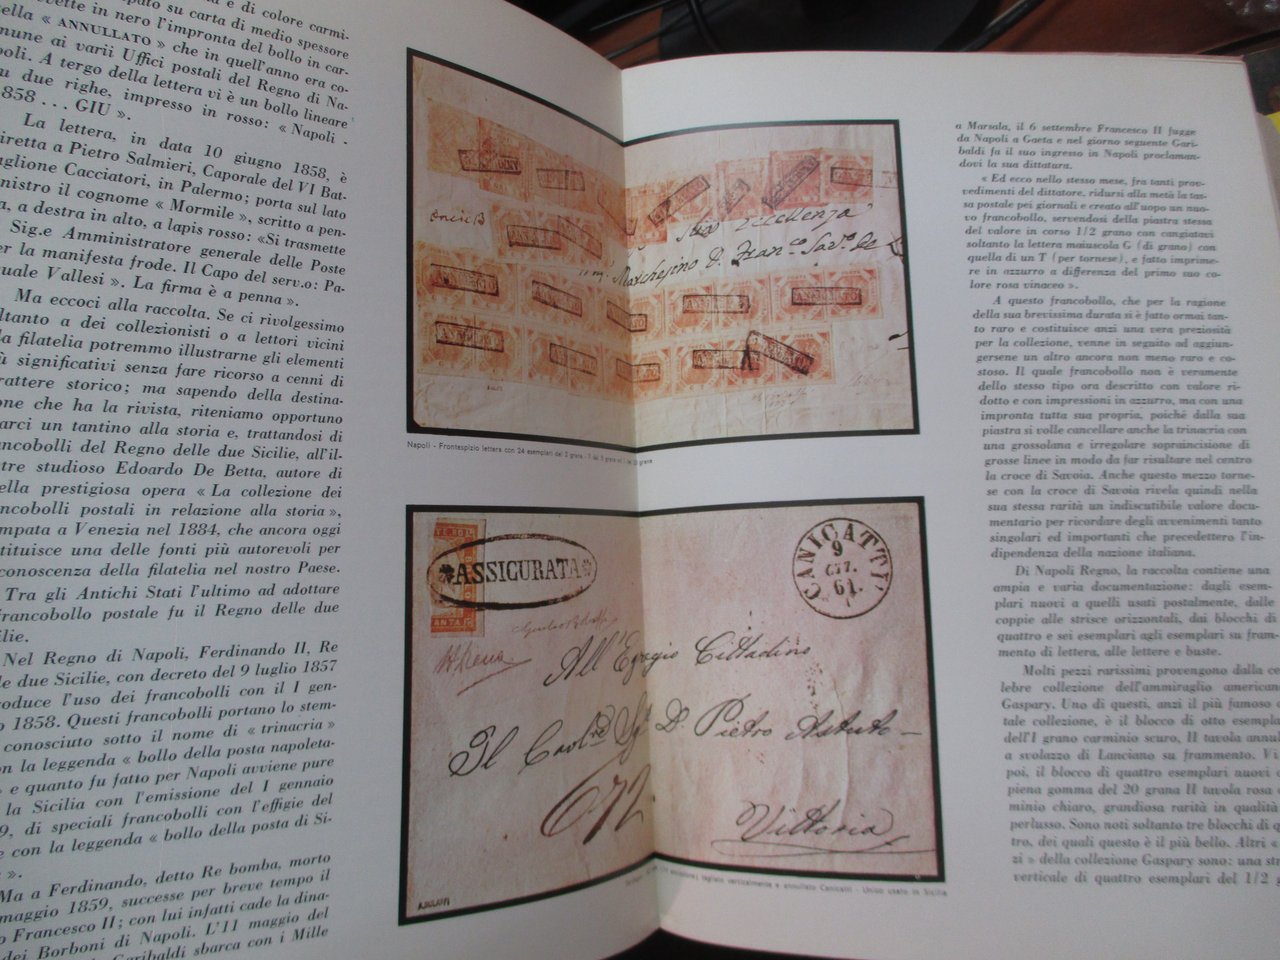 e di colore carmi-
pato su carta di medio spessore
vette in nero l'impronta del bollo in car-
ella « ANNULLATO » che in quell'anno era co-
mune ai varii Uffici postali del Regno di Na-
poli. A tergo della lettera vi è un bollo lineare
u due righe, impresso in rosso: « Napoli -
858 . . . GIU ».
La lettera, in data 10 giugno 1858, è
iretta a Pietro Salmieri, Caporale del VI Bat-
aglione Cacciatori, in Palermo; porta sul lato
nistro il cognome « Mormile », scritto a pen-
a, a destra in alto, a lapis rosso: «Si trasmette
Sig.e Amministratore generale delle Poste
er la manifesta frode. Il Capo del serv.o: Pa-
uale Vallesi ». La firma è a penna ».
Ma eccoci alla raccolta. Se ci rivolgessimo
ltanto a dei collezionisti o a lettori vicini
la filatelia potremmo illustrarne gli elementi
ù significativi senza fare ricorso a cenni di
rattere storico; ma sapendo della destina-
one che ha la rivista, riteniamo opportuno
arci un tantino alla storia e, trattandosi di
ancobolli del Regno delle due Sicilie, all'il-
tre studioso Edoardo De Betta, autore di
ella prestigiosa opera « La collezione dei
ncobolli postali in relazione alla storia »,
mpata a Venezia nel 1884, che ancora oggi
tituisce una delle fonti più autorevoli per
conoscenza della filatelia nel nostro Paese.
Tra gli Antichi Stati l'ultimo ad adottare
francobollo postale fu il Regno delle due
ilie.
Nel Regno di Napoli, Ferdinando II, Re
le due Sicilie, con decreto del 9 luglio 1857
roduce l'uso dei francobolli con il I gen-
o 1858. Questi francobolli portano lo stem-
conosciuto sotto il nome di « trinacria »
on la leggenda « bollo della posta napoleta-
» e quanto fu fatto per Napoli avviene pure
la Sicilia con l'emissione del I gennaio
9, di speciali francobolli con l'effigie del
e con la leggenda « bollo della posta di Si-
».
Ma a Ferdinando, detto Re bomba, morto
maggio 1859, successe per breve tempo il
o Francesco II; con lui infatti cade la dina-
dei Borboni di Napoli. L'11 maggio del
Garibaldi sbarca con i Mille
ANNULLATO
Sua Eccellenza
Marchesino D. Franco Savo de
Napoli - Frontespizio lettera con 24 esemplari del 2 grana - 1 del 5 grana ed 1 del 20 grana
ASSICURATA
CANICATTI'
9
GIU.
61.
All'Egregio Cittadino
Il Cavlre Sgr D. Pietro Astuto
672
Vittoria
tagliato verticalmente e annullato Canicattì - Unico usato in Sicilia
a Marsala, il 6 settembre Francesco II fugge
da Napoli a Gaeta e nel giorno seguente Gari-
baldi fa il suo ingresso in Napoli proclaman-
dovi la sua dittatura.
« Ed ecco nello stesso mese, fra tanti prov-
vedimenti del dittatore, ridursi alla metà la tas-
sa postale pei giornali e creato all'uopo un nuo-
vo francobollo, servendosi della piastra stessa
del valore in corso 1/2 grano con cangiatavi
soltanto la lettera maiuscola G (di grano) con
quella di un T (per tornese), e fatto imprime-
re in azzurro a differenza del primo suo co-
lore rosa vinaceo ».
A questo francobollo, che per la ragione
della sua brevissima durata si è fatto ormai tan-
to raro e costituisce anzi una vera preziosità
per la collezione, venne in seguito ad aggiun-
gersene un altro ancora non meno raro e co-
stoso. Il quale francobollo non è veramente
dello stesso tipo ora descritto con valore ri-
dotto e con impressioni in azzurro, ma con una
impronta tutta sua propria, poichè dalla sua
piastra si volle cancellare anche la trinacria con
una grossolana e irregolare sopraincisione di
grosse linee in modo da far risultare nel centro
la croce di Savoia. Anche questo mezzo torne-
se con la croce di Savoia rivela quindi nella
sua stessa rarità un indiscutibile valore docu-
mentario per ricordare degli avvenimenti tanto
singolari ed importanti che precedettero l'in-
dipendenza della nazione italiana.
Di Napoli Regno, la raccolta contiene una
ampia e varia documentazione: dagli esem-
plari nuovi a quelli usati postalmente, dalle
coppie alle strisce orizzontali, dai blocchi di
quattro e sei esemplari agli esemplari su fram-
mento di lettera, alle lettere e buste.
Molti pezzi rarissimi provengono dalla ce-
lebre collezione dell'ammiraglio american
Gaspary. Uno di questi, anzi il più famoso
tale collezione, è il blocco di otto esempla
dell'I grano carminio scuro, II tavola annul
a svolazzo di Lanciano su frammento. Vi
poi, il blocco di quattro esemplari nuovi
piena gomma del 20 grana II tavola rosa
minio chiaro, grandiosa rarità in qualità
perlusso. Sono noti soltanto tre blocchi di
tro, dei quali questo è il più bello. Altri «
zi » della collezione Gaspary sono: una str
verticale di quattro esemplari del 1/2 g